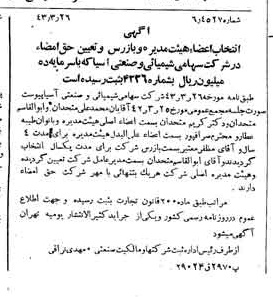 شماره ۶ر۴۵۲۷ ۴۳ر۳ر۲۶
آگهی
انتخاب اعضاء هیئت مدیره و بازرس و تعیین حق امضاء
در شرکت سهامی شیمیائی و صنعتی آسیا که با سرمایه ده
میلیون ریال بشماره ۶۲۳۶ ثبت رسیده است
طبق نامه مورخه ۴۳ر۳ر۲۶ شرکت سهامی شیمیائی و صنعتی آسیا پیوست
صورتجلسه مجمع عمومی مورخ ۴۲ر۳ر۲۵ آقایان محمدعلی متحدان و ابوالقاسم
متحدان و دکتر کریم متحدان بسمت اعضاء اصلی هیئت مدیره و بانوان طیبه
عطار و محترم صرافپور بسمت اعضاء علی‌البدل هیئت مدیره برای مدت ۴
سال و آقای مظفر معتبر بسمت بازرس شرکت برای مدت یکسال انتخاب
گردیدند و آقای ابوالقاسم متحدان بسمت مدیرعامل شرکت تعیین گردیده
وهیئت مدیره اصلی شرکت هریک بتنهائی با مهر شرکت حق امضاء
دارند
مراتب طبق ماده ۲۰۰ قانون تجارت بثبت رسیده و جهت اطلاع
عموم در روزنامه رسمی کشور ویکی از جراید کثیرالانتشار یومیه تهران
آگهی میشود
از طرف رئیس اداره ثبت شرکتها و مالکیت صنعتی - مهدی نراقی
پ ۲۹۷۰ ق ۲۹۰۲۴